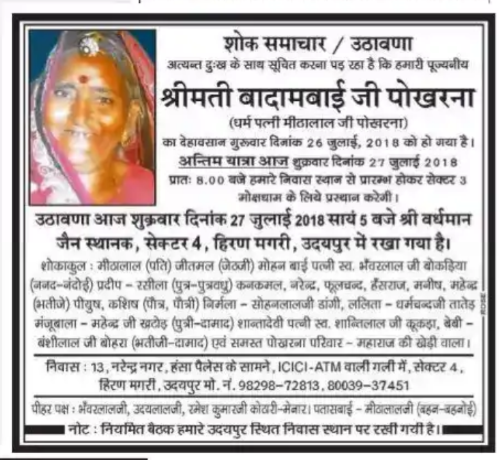 शोक समाचार / उठावणा
अत्यन्त दुःख के साथ सूचित करना पड़ रहा है कि हमारी पूज्यनीय
श्रीमती बादामबाई जी पोखरना
(धर्म पत्नी मीठालाल जी पोखरना)
का देहावसान गुरूवार दिनांक 26 जुलाई, 2018 को हो गया है।
अन्तिम यात्रा आज शुक्रवार दिनांक 27 जुलाई 2018
प्रातः 8.00 बजे हमारे निवास स्थान से प्रारम्भ होकर सेक्टर 3
मोक्षधाम के लिये प्रस्थान करेगी।
उठावणा आज शुक्रवार दिनांक 27 जुलाई 2018 सायं 5 बजे श्री वर्धमान
जैन स्थानक, सेक्टर 4, हिरण मगरी, उदयपुर में रखा गया है।
शोकाकुल : मीठालाल (पति) जीतमल (जेठजी) मोहन बाई पत्नी स्व. भँवरलाल जी बोकड़िया
(ननद-नंदोई) प्रदीप - रसीला (पुत्र-पुत्रवधु) कनकमल, नरेन्द्र, फूलचन्द, हँसराज, मनीष, महेन्द्र
(भतीजे) पीयुष, कशिष (पौत्र, पौत्री) निर्मला - सोहनलालजी डांगी, ललिता - धर्मचन्दजी तातेड़
मंजूबाला - महेन्द्र जी खटोड़ (पुत्री-दामाद) शान्तादेवी पत्नी स्व. शान्तिलाल जी कूकड़ा, बेबी -
बंशीलाल जी बोहरा (भतीजी-दामाद) एवं समस्त पोखरना परिवार - महाराज की खेड़ी वाला।
निवास : 13, नरेन्द्र नगर, हंसा पैलेस के सामने, ICICI-ATM वाली गली में, सेक्टर 4,
हिरण मगरी, उदयपुर मो. नं. 98298-72813, 80039-37451
पीहर पक्ष : भँवरलालजी, उदयलालजी, रमेश कुमारजी कोठारी-मेनार। पतासबाई - मीठालालजी (बहन-बहनोई)
नोट : नियमित बैठक हमारे उदयपुर स्थित निवास स्थान पर रखी गयी है।